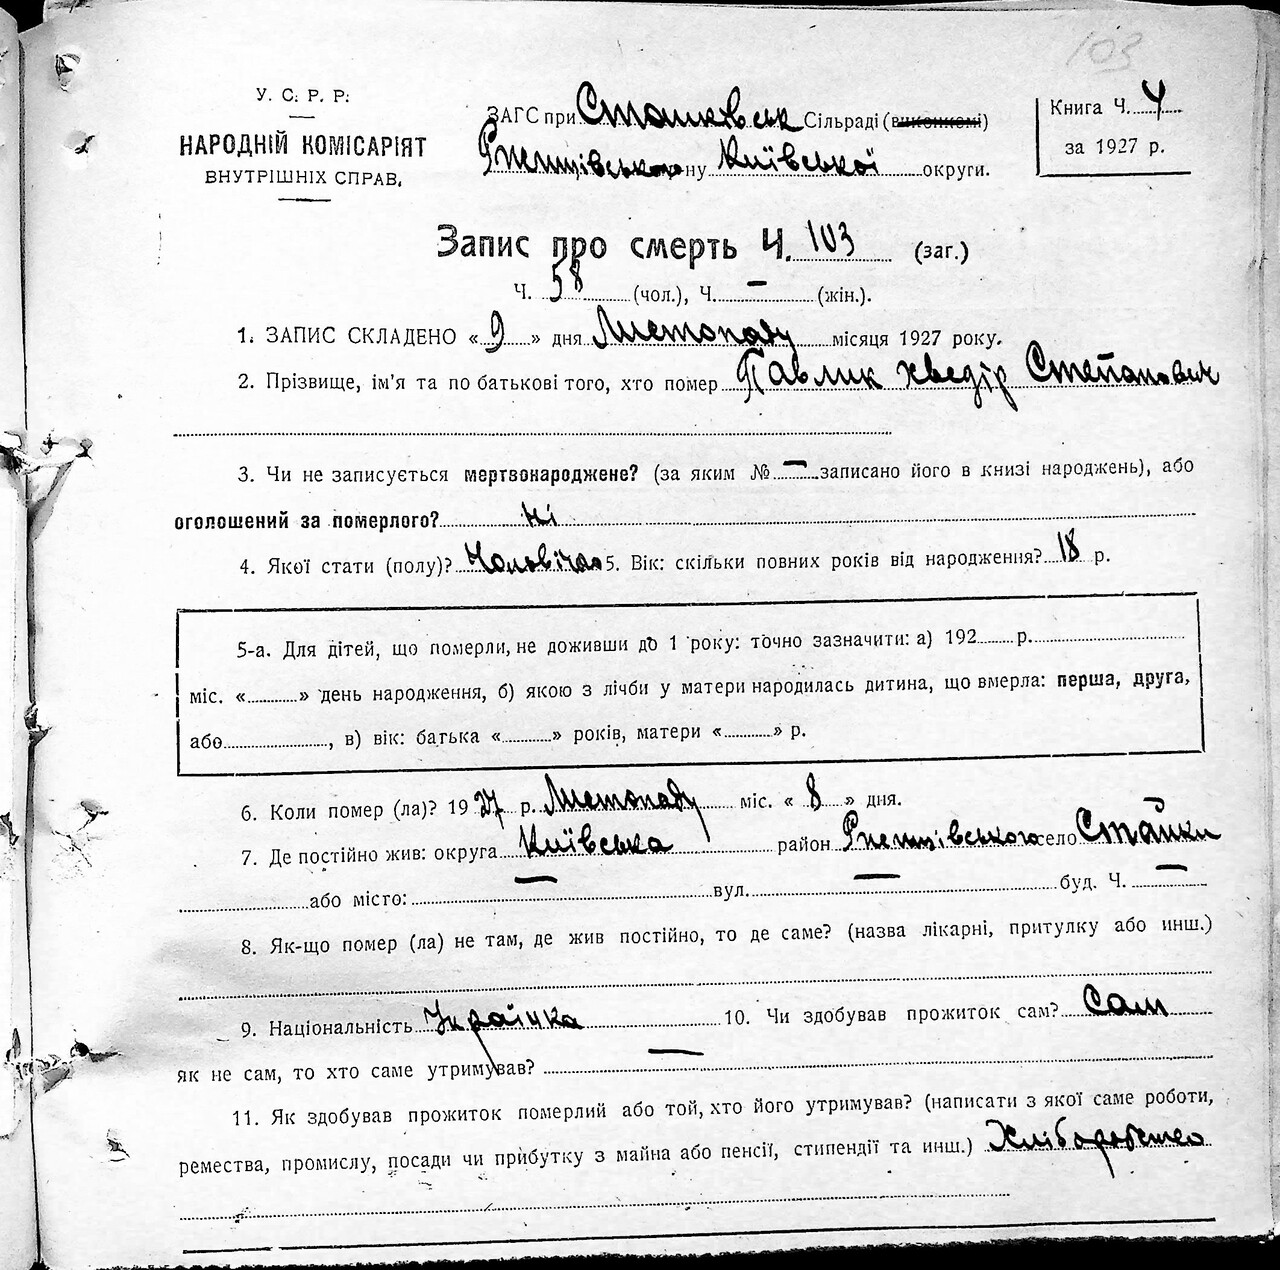 103
У. С. Р. Р.
НАРОДНІЙ КОМІСАРІЯТ
ВНУТРІШНІХ СПРАВ.
ЗАГС при Сташквськ Сільраді (виконкомі)
Ржищівського ну Київської округи.
Книга Ч. 4
за 1927 р.
Запис про смерть Ч. 103 (заг.)
Ч. 58 (чол.), Ч. — (жін.).
1. ЗАПИС СКЛАДЕНО « 9 » дня Листопаду місяця 1927 року.
2. Прізвище, ім'я та по батькові того, хто помер Павлик Хведір Степанович
3. Чи не записується мертвонароджене? (за яким № — записано його в книзі народжень), або
оголошений за померлого? ні
4. Якої стати (полу)? Чоловічао 5. Вік: скільки повних років від народження? 18 р.
5-а. Для дітей, що померли, не доживши до 1 року: точно зазначити: а) 192 р.
міс. « » день народження, б) якою з лічби у матери народилась дитина, що вмерла: перша, друга,
або , в) вік: батька « » років, матери « » р.
6. Коли помер (ла)? 1927 р. Листопаду міс. « 8 » дня.
7. Де постійно жив: округа Київська район Ржищівського село Стайки
або місто: — вул. — буд. Ч. —
8. Як-що помер (ла) не там, де жив постійно, то де саме? (назва лікарні, притулку або инш.)
9. Національність Українка 10. Чи здобував прожиток сам? Сам
як не сам, то хто саме утримував? —
11. Як здобував прожиток померлий або той, хто його утримував? (написати з якої саме роботи,
ремества, промислу, посади чи прибутку з майна або пенсії, стипендії та инш.) Хліборобство